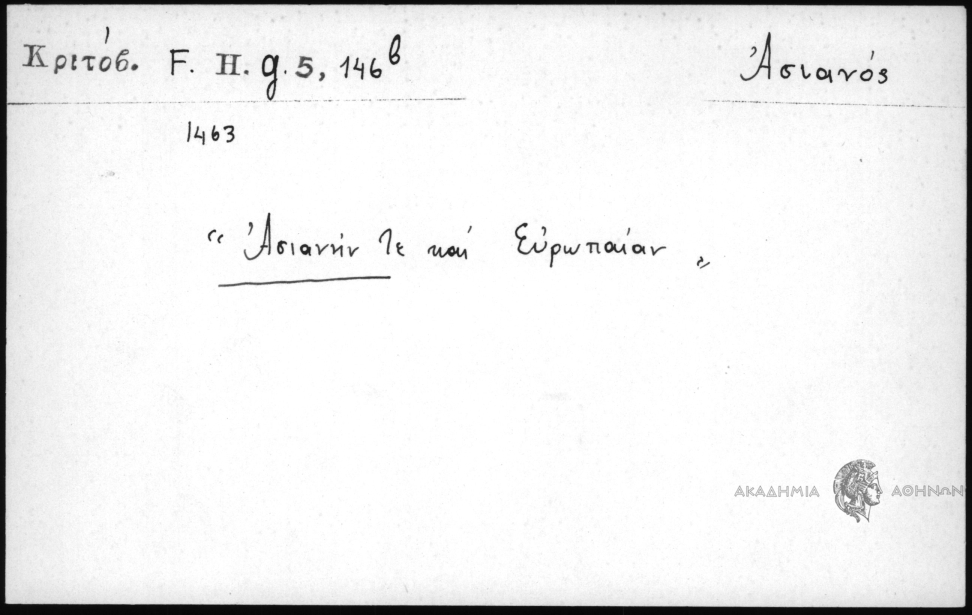 Κριτόβ. F. H. g. 5, 146ᵇ Ἀσιανός
1463
“ Ἀσιανήν τε καί Εὐρωπαίαν „
ΑΚΑΔΗΜΙΑ ΑΘΗΝΩΝ